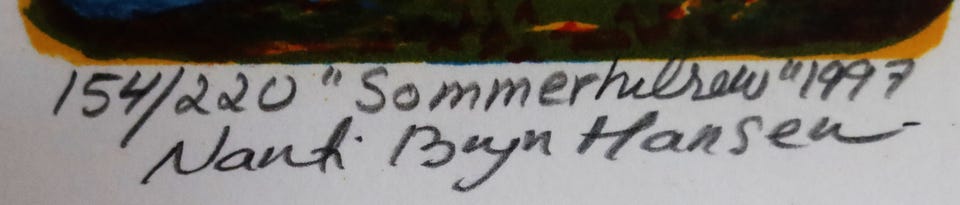 154/220 "Sommerhilsen" 1997
Bryn Hansen